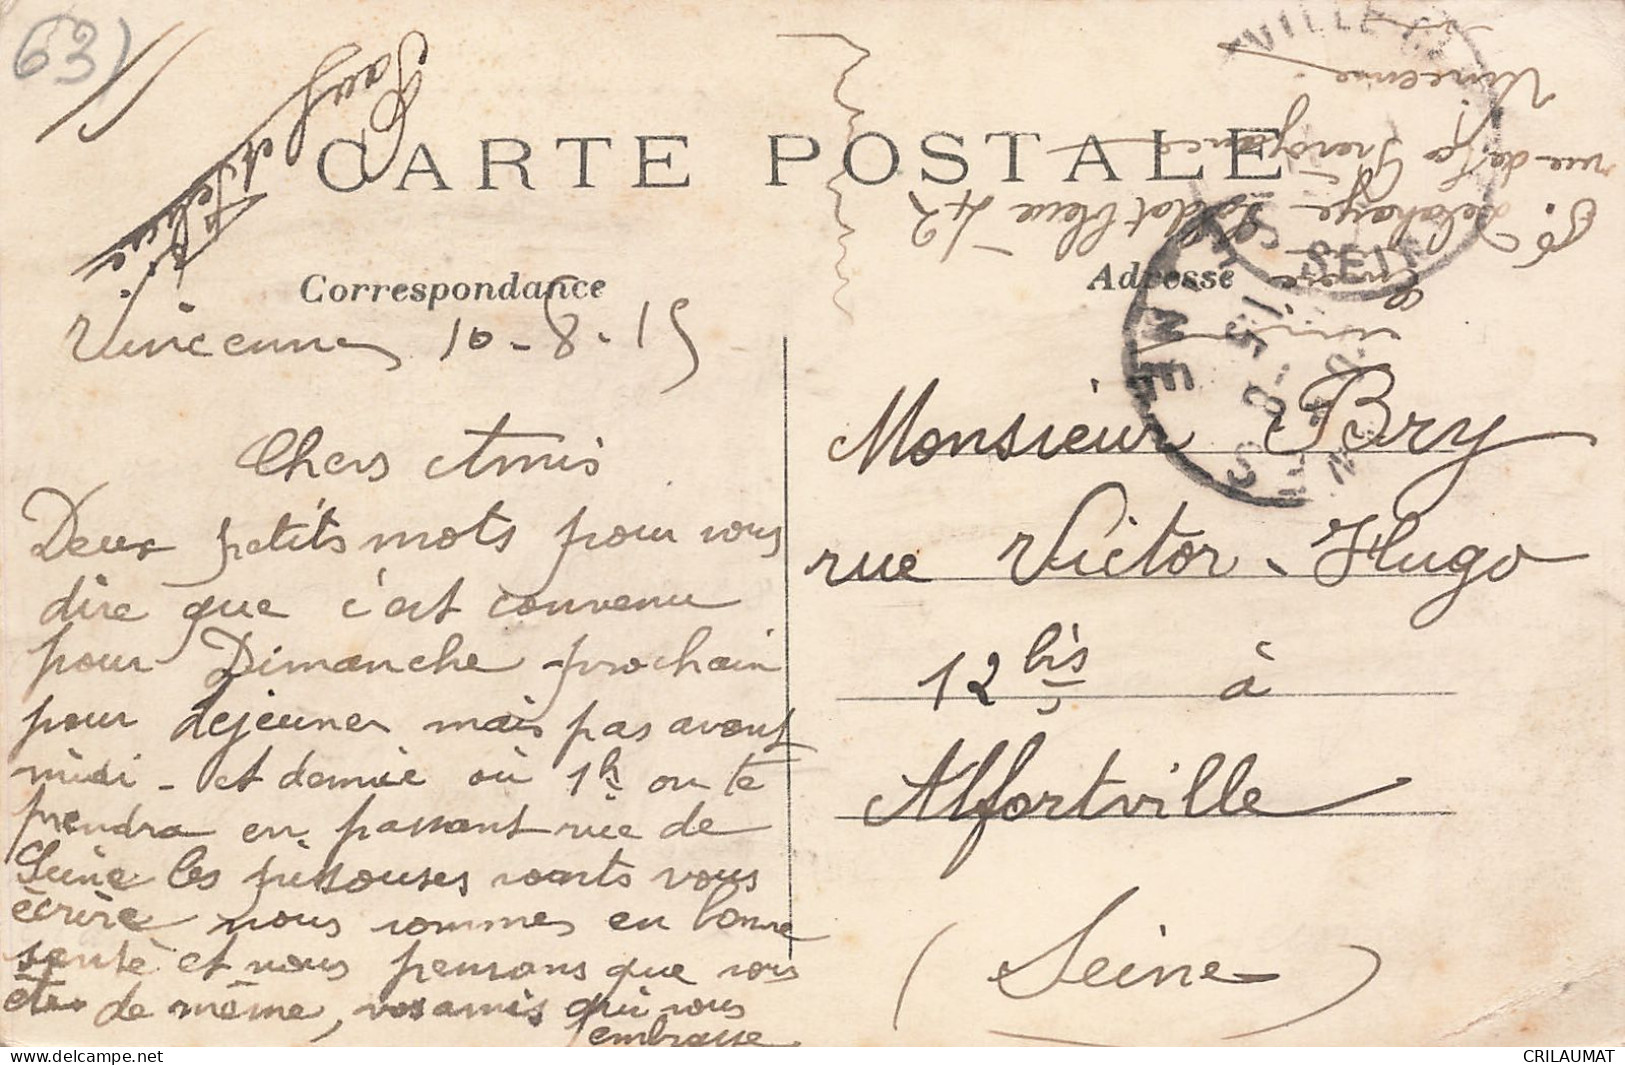 63)
CARTE POSTALE
Correspondance
Adresse
Vincennes 10-8-15
Chers Amis
Deux petits mots pour vous
dire que c'est convenu
pour Dimanche prochain
pour dejeuner mais pas avant
midi - et demie où 1h on te
prendra en passant rue de
Seine les vous
écrire nous sommes en bonne
santé et nous pensons que vous
êtes de même, vos amis qui vous
embrasse
Monsieur Bry
rue Victor-Hugo
12 bis à
Alfortville
(Seine)
Delahaye Soldat bleu 42
rue de la Prévoyance
Vincennes
Seine
CRILAUMAT